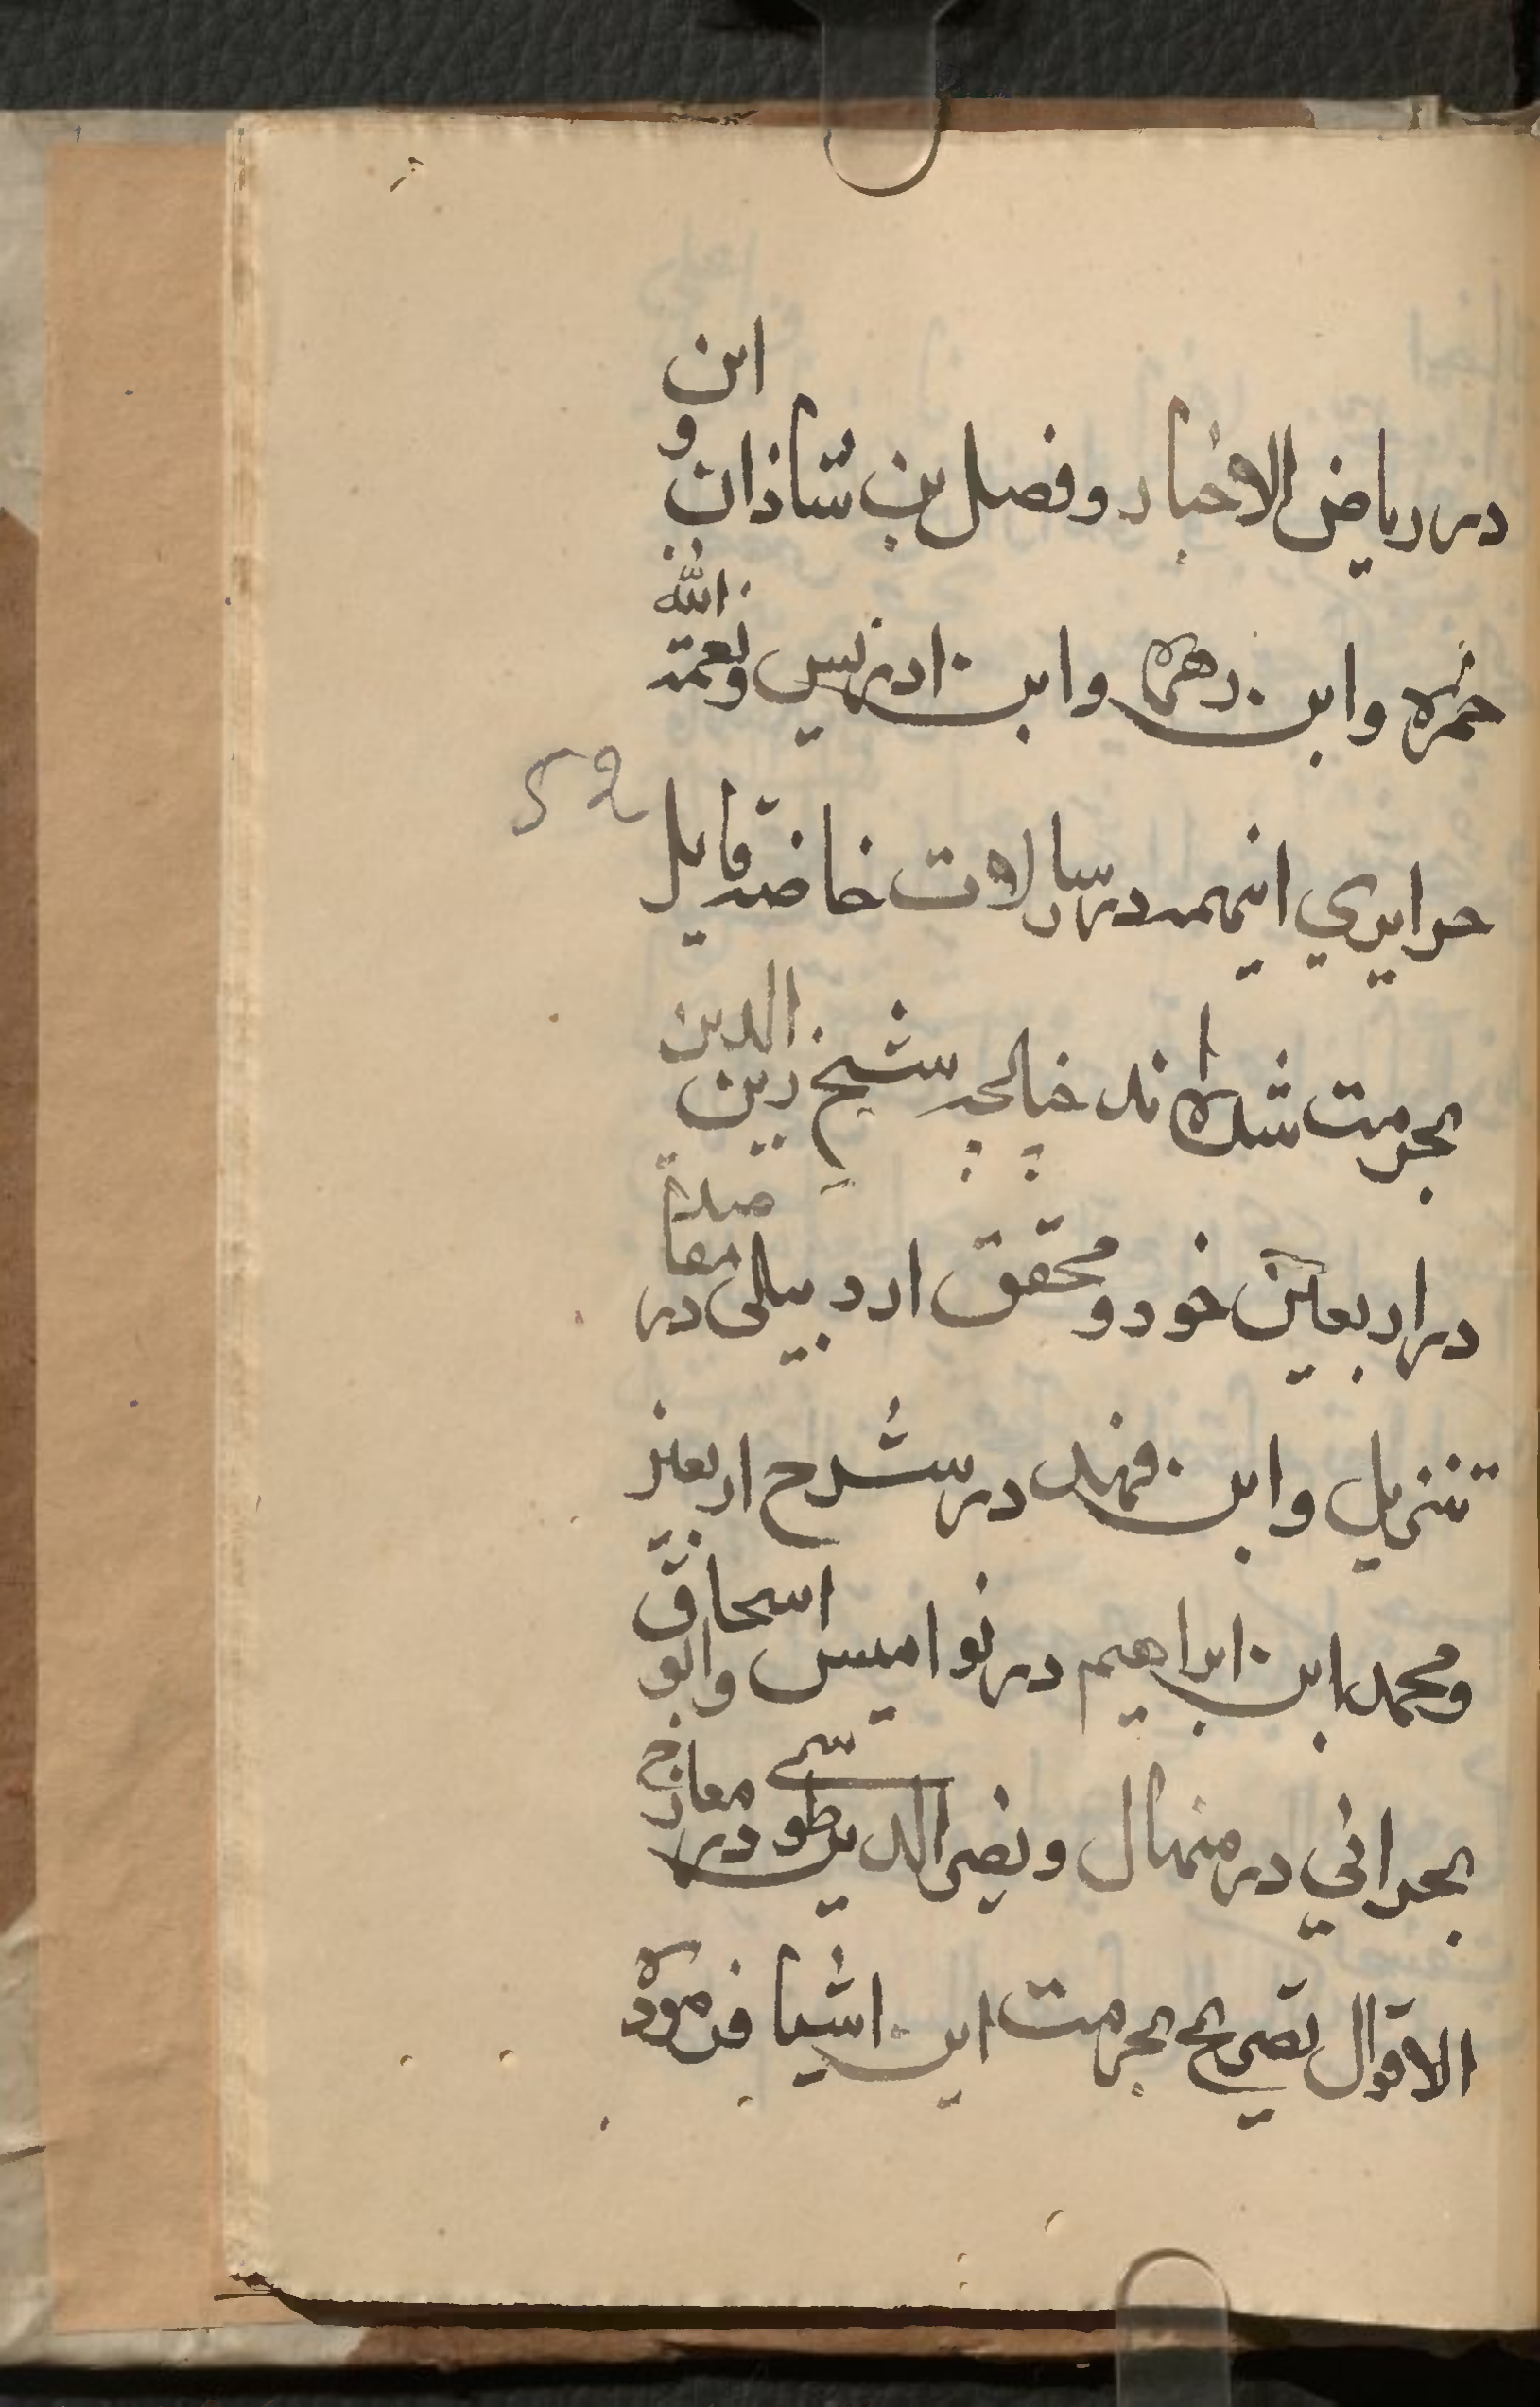 در ریاض الاخبار و فضل بن شاذان و ابن
حمزه و ابن زهره و ابن ادریس و نعمة الله
جرایری اینهمه در رسالات خاصّه قایل
بحرمت شده اند چنانچه شیخ زین الدین
در اربعین خود و محقق اردبیلی در مقاصد
تنزیل و ابن فهد در شرح اربعین
و محمد ابن ابراهیم در نوامیس و ابو اسحاق
بحرانی در منهال و نصیر الدین طوسی در معارج
الاقوال تصریح بحرمت این اشیا فرموده
52